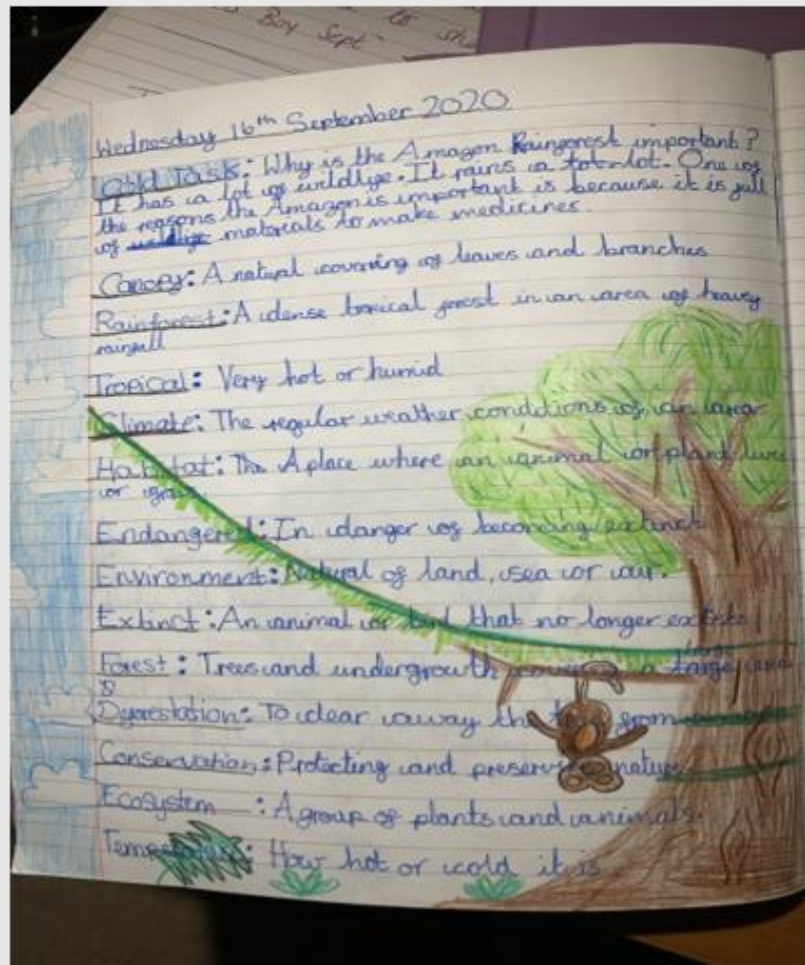 Boy Sept
Wednesday 16th September 2020
Cold Task: Why is the Amazon Rainforest important?
It has a lot of wildlife. It rains a lot. One of
the reasons the Amazon is important is because it is full
of materials to make medicines.
Canopy: A natural covering of leaves and branches
Rainforest: A dense tropical forest in an area of heavy
rainfall
Tropical: Very hot or humid
Climate: The regular weather conditions of an area
Habitat: The A place where an animal or plant lives
or grows.
Endangered: In danger of becoming extinct
Environment: Natural of land, sea or air.
Extinct: An animal or bird that no longer exists
Forest: Trees and undergrowth covering a large
Deforestation: To clear away the trees from
Conservation: Protecting and preserving nature
Ecosystem: A group of plants and animals.
Temperature: How hot or cold it is